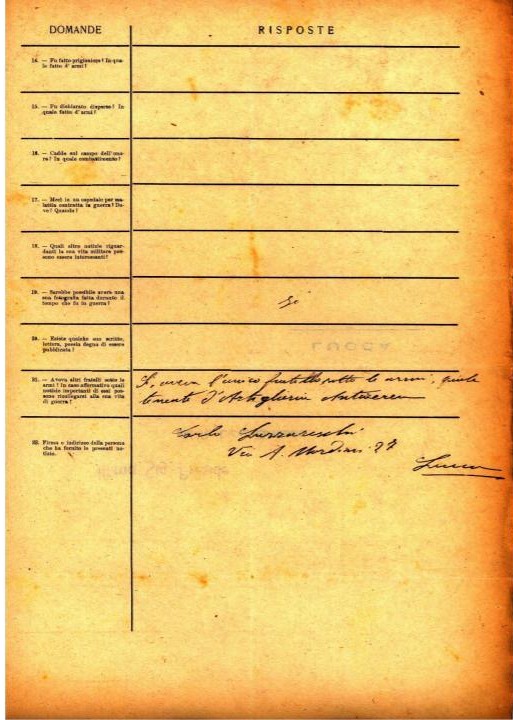 DOMANDE
RISPOSTE
14. — Fu fatto prigioniero? In qua-
le fatto d'armi?
15. — Fu dichiarato disperso? In
quale fatto d'armi?
16. — Cadde sul campo dell'ono-
re? In quale combattimento?
17. — Morì in un ospedale per ma-
lattia contratta in guerra? Do-
ve? Quando?
18. — Quali altre notizie riguar-
danti la sua vita militare pos-
sono essere interessanti?
19. — Sarebbe possibile avere una
sua fotografia fatta durante il
tempo che fu in guerra?
Si
20. — Esiste qualche suo scritto,
lettera, poesia degna di essere
pubblicata?
LUCCA
21. — Aveva altri fratelli sotto le
armi? In caso affermativo quali
notizie importanti di essi pos-
sono ricollegarsi alla sua vita
di guerra?
Si, aveva l'unico fratello sotto le armi, quale
tenente d'Artiglieria Antiaerea
22. Firma e indirizzo della persona
che ha fornito le presenti no-
tizie.
Carlo Luzzareschi
Via A. Mordini 27
Lucca